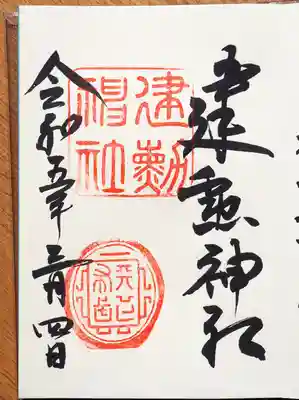 建勲神社
建勳神社
令和五年三月四日